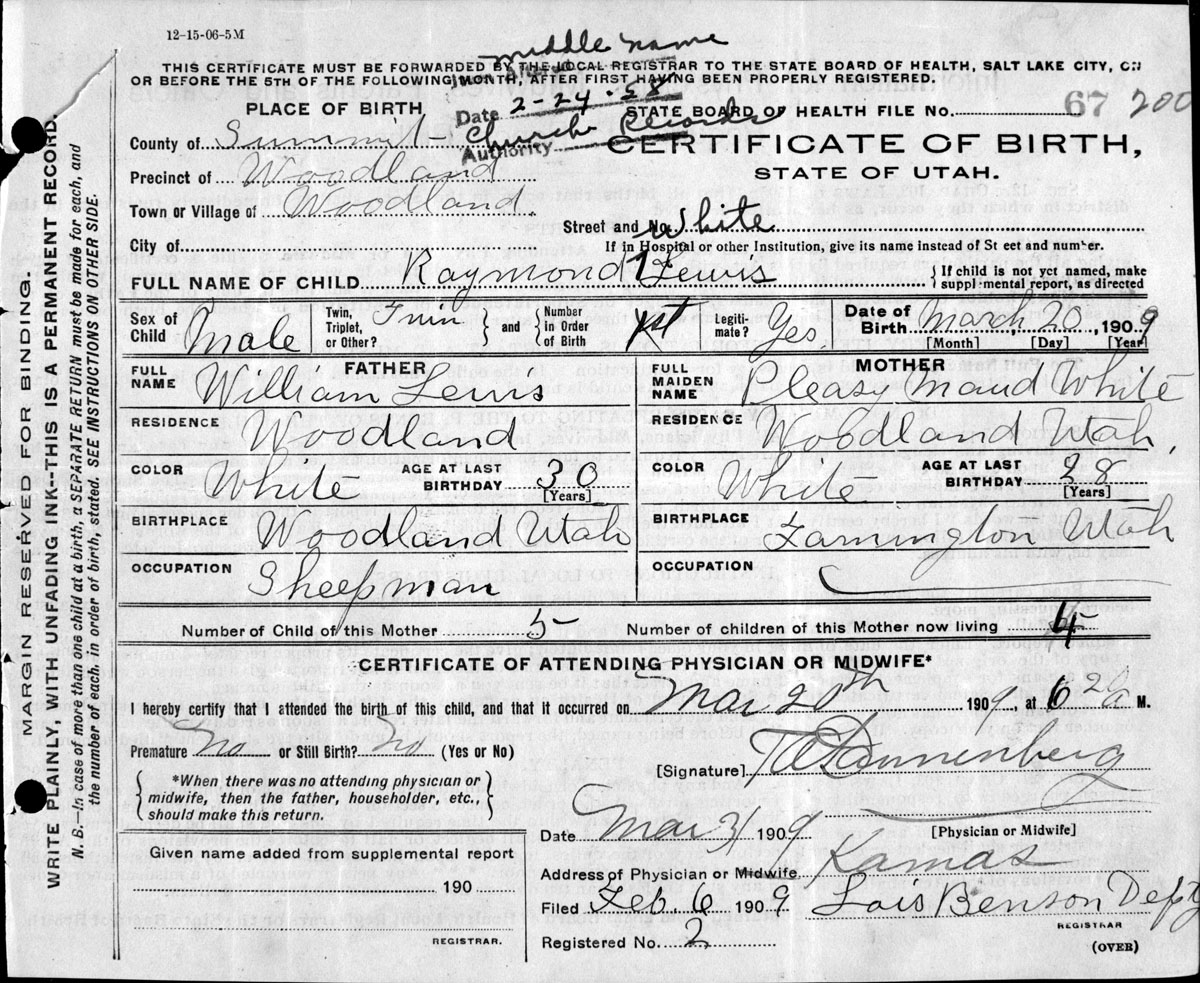 12-15-06-5M
middle name
THIS CERTIFICATE MUST BE FORWARDED BY THE LOCAL REGISTRAR TO THE STATE BOARD OF HEALTH, SALT LAKE CITY, ON
OR BEFORE THE 5TH OF THE FOLLOWING MONTH, AFTER FIRST HAVING BEEN PROPERLY REGISTERED.
Date 2-24-58
Authority Church Records
PLACE OF BIRTH
STATE BOARD OF HEALTH FILE No. 67 200
County of Summit
CERTIFICATE OF BIRTH,
STATE OF UTAH.
Precinct of Woodland
Town or Village of Woodland.
Street and No.
City of
If in Hospital or other Institution, give its name instead of St eet and number.
White
FULL NAME OF CHILD Raymond Lewis
If child is not yet named, make suppl mental report, as directed
Sex of Child Male
Twin, Triplet, or Other? Twin and Number in Order of Birth 1st
Legiti-mate? Yes
Date of Birth March 20 1909
[Month] [Day] [Year]
FATHER
FULL NAME William Lewis
RESIDENCE Woodland
COLOR White AGE AT LAST BIRTHDAY 30 [Years]
BIRTHPLACE Woodland Utah
OCCUPATION Sheepman
MOTHER
FULL MAIDEN NAME Pleasy Maud White
RESIDENCE Woodland Utah
COLOR White AGE AT LAST BIRTHDAY 28 [Years]
BIRTHPLACE Farmington Utah
OCCUPATION
Number of Child of this Mother 5 Number of children of this Mother now living 4
CERTIFICATE OF ATTENDING PHYSICIAN OR MIDWIFE*
I hereby certify that I attended the birth of this child, and that it occurred on Mar 20th 1909, at 6 20 a M.
Premature No or Still Birth? No (Yes or No)
*When there was no attending physician or
midwife, then the father, householder, etc.,
should make this return.
[Signature] Dannenberg
[Physician or Midwife]
Date Mar 31 1909
Given name added from supplemental report
190
REGISTRAR.
Address of Physician or Midwife Kamas
Filed Feb 6 1909 Lois Benson Depty
REGISTRAR
Registered No. 2
(OVER)
MARGIN RESERVED FOR BINDING.
WRITE PLAINLY, WITH UNFADING INK--THIS IS A PERMANENT RECORD.
N. B.--In case of more than one child at a birth, a SEPARATE RETURN must be made for each, and
the number of each, in order of birth, stated. SEE INSTRUCTIONS ON OTHER SIDE.